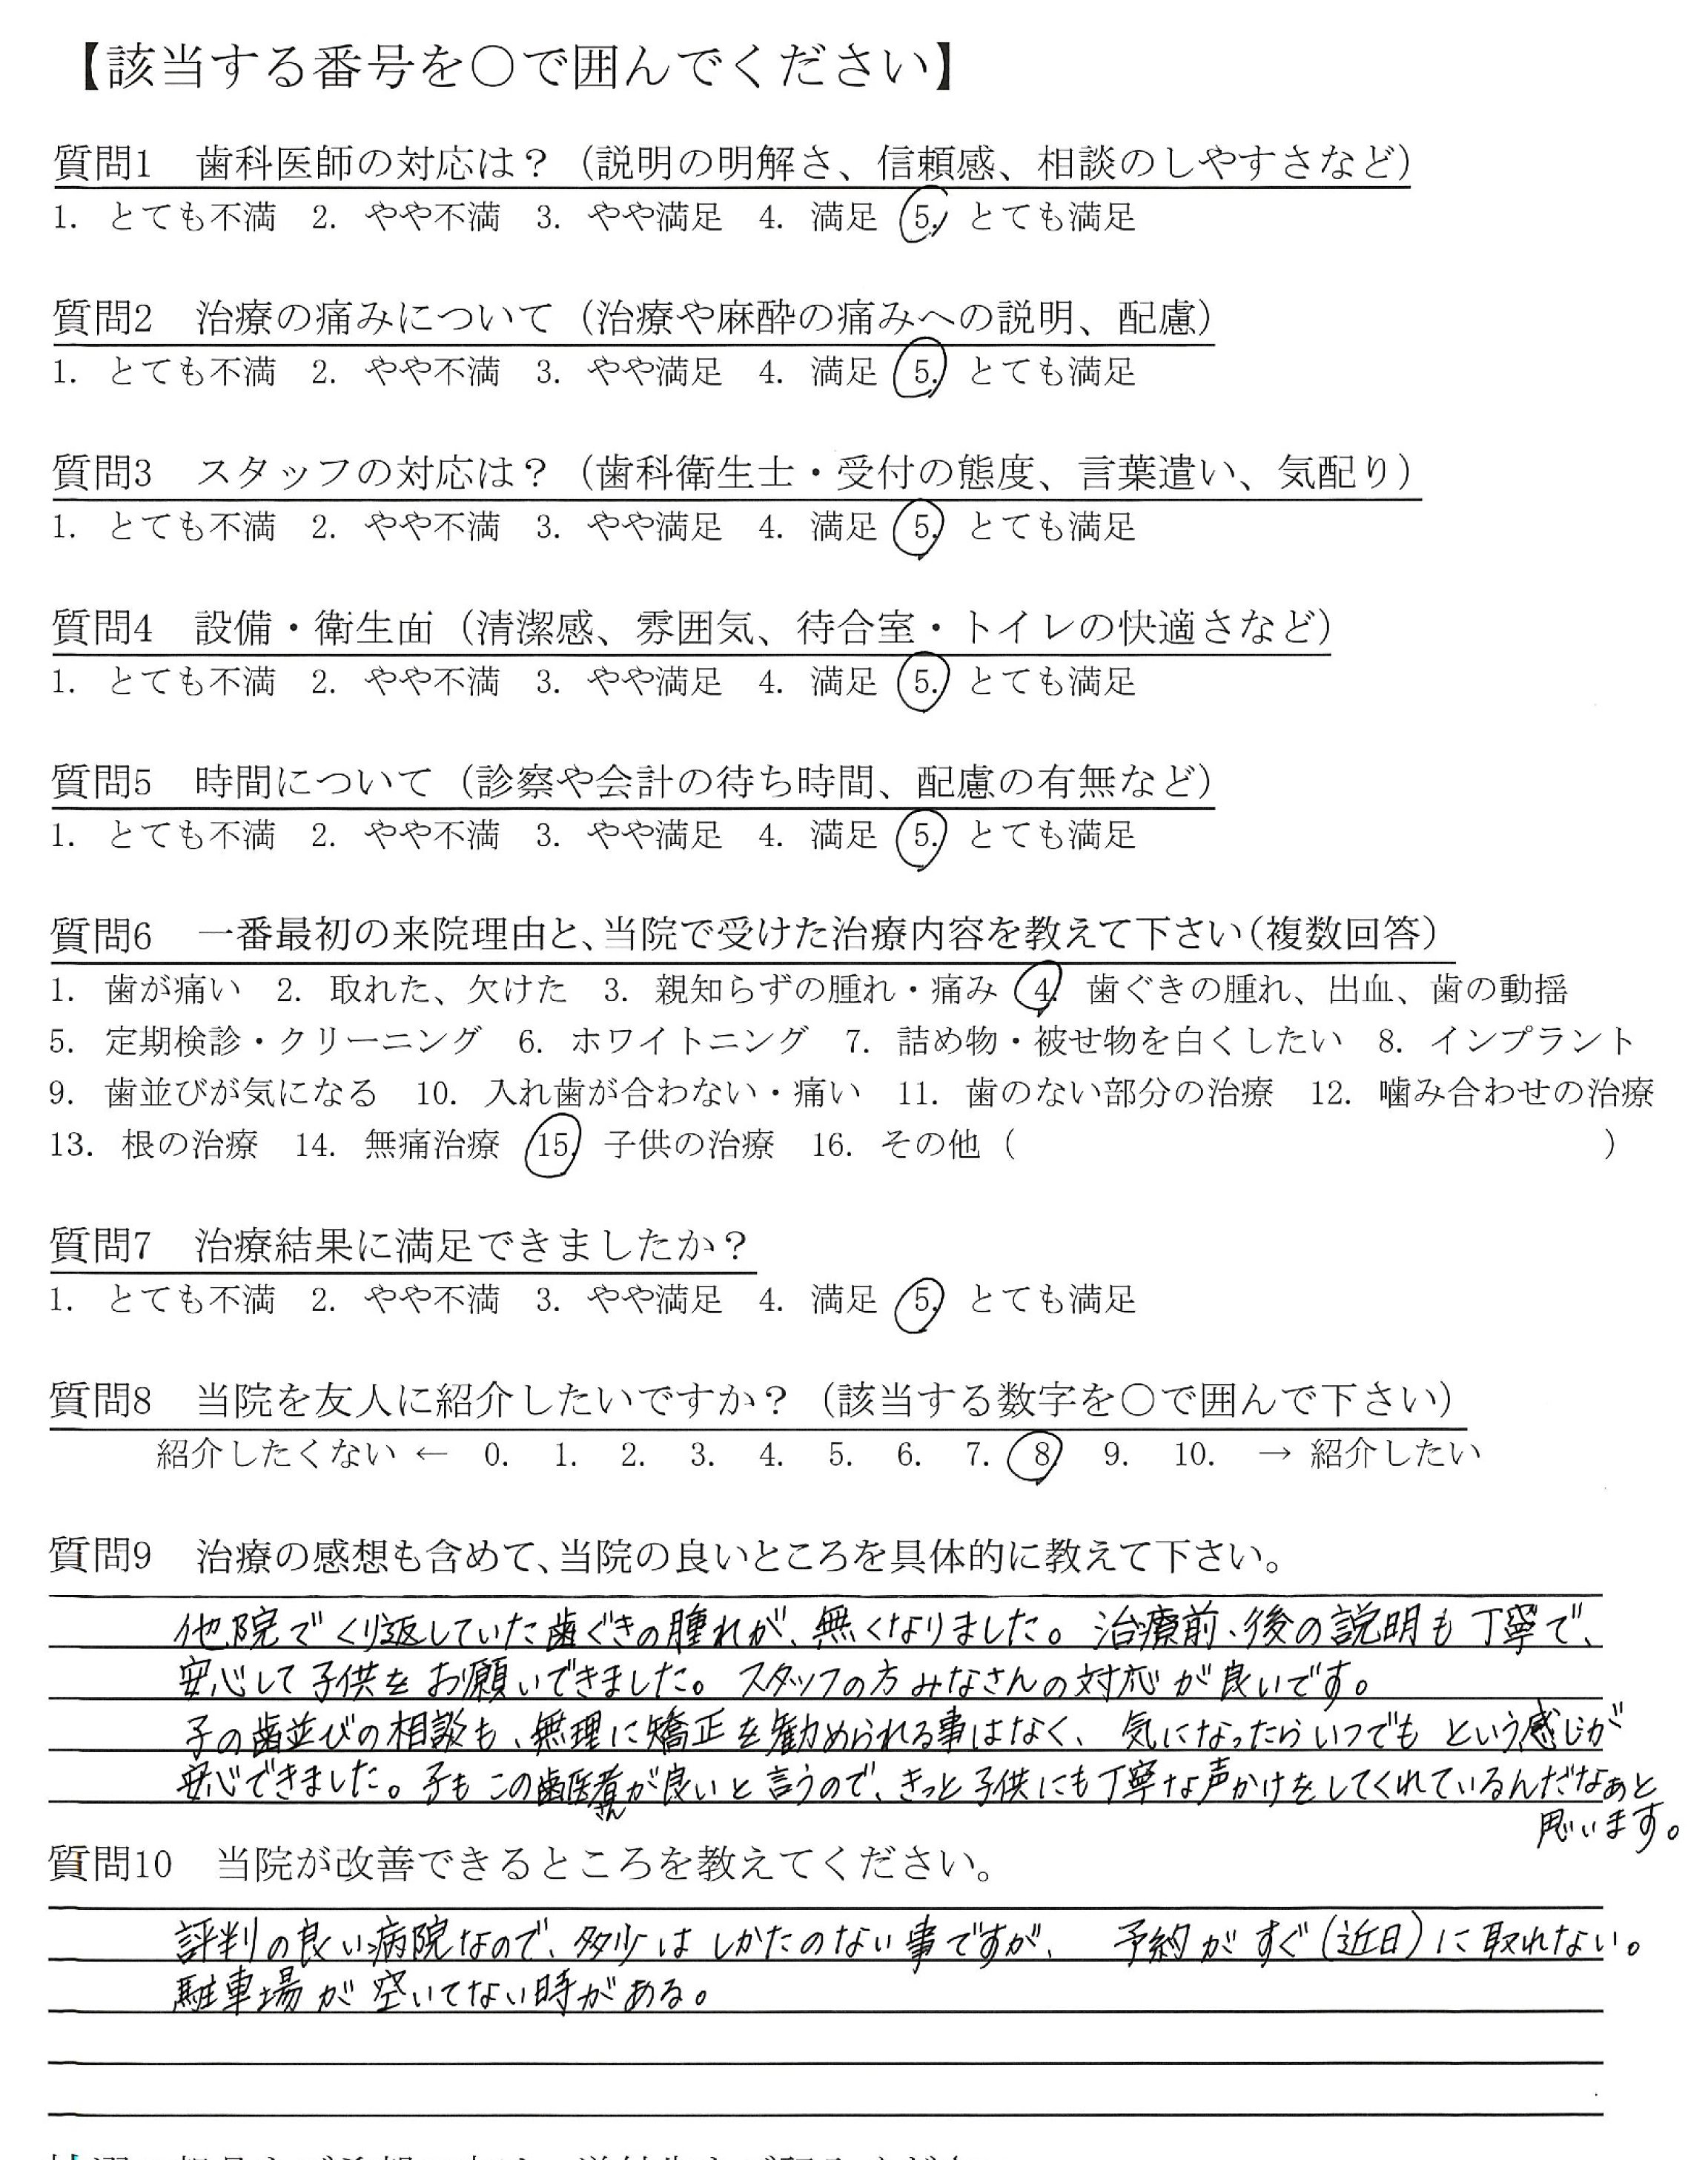 【該当する番号を○で囲んでください】
質問1　歯科医師の対応は？（説明の明解さ、信頼感、相談のしやすさなど）
1. とても不満　2. やや不満　3. やや満足　4. 満足　5. とても満足
質問2　治療の痛みについて（治療や麻酔の痛みへの説明、配慮）
1. とても不満　2. やや不満　3. やや満足　4. 満足　5. とても満足
質問3　スタッフの対応は？（歯科衛生士・受付の態度、言葉遣い、気配り）
1. とても不満　2. やや不満　3. やや満足　4. 満足　5. とても満足
質問4　設備・衛生面（清潔感、雰囲気、待合室・トイレの快適さなど）
1. とても不満　2. やや不満　3. やや満足　4. 満足　5. とても満足
質問5　時間について（診察や会計の待ち時間、配慮の有無など）
1. とても不満　2. やや不満　3. やや満足　4. 満足　5. とても満足
質問6　一番最初の来院理由と、当院で受けた治療内容を教えて下さい（複数回答）
1. 歯が痛い　2. 取れた、欠けた　3. 親知らずの腫れ・痛み　4. 歯ぐきの腫れ、出血、歯の動揺
5. 定期検診・クリーニング　6. ホワイトニング　7. 詰め物・被せ物を白くしたい　8. インプラント
9. 歯並びが気になる　10. 入れ歯が合わない・痛い　11. 歯のない部分の治療　12. 噛み合わせの治療
13. 根の治療　14. 無痛治療　15. 子供の治療　16. その他（　　　　　　　　　　　　　　　）
質問7　治療結果に満足できましたか？
1. とても不満　2. やや不満　3. やや満足　4. 満足　5. とても満足
質問8　当院を友人に紹介したいですか？（該当する数字を○で囲んで下さい）
紹介したくない ← 0.　1.　2.　3.　4.　5.　6.　7.　8.　9.　10.　→ 紹介したい
質問9　治療の感想も含めて、当院の良いところを具体的に教えて下さい。
他院でくり返していた歯ぐきの腫れが、無くなりました。治療前、後の説明も丁寧で、
安心して子供をお願いできました。スタッフの方みなさんの対応が良いです。
子の歯並びの相談も、無理に矯正を勧められる事はなく、気になったらいつでもという感じが
安心できました。子もこの歯医者さんが良いと言うので、きっと子供にも丁寧な声かけをしてくれているんだなぁと
思います。
質問10　当院が改善できるところを教えてください。
評判の良い病院なので、多少はしかたのない事ですが、予約がすぐ（近日）に取れない。
駐車場が空いてない時がある。